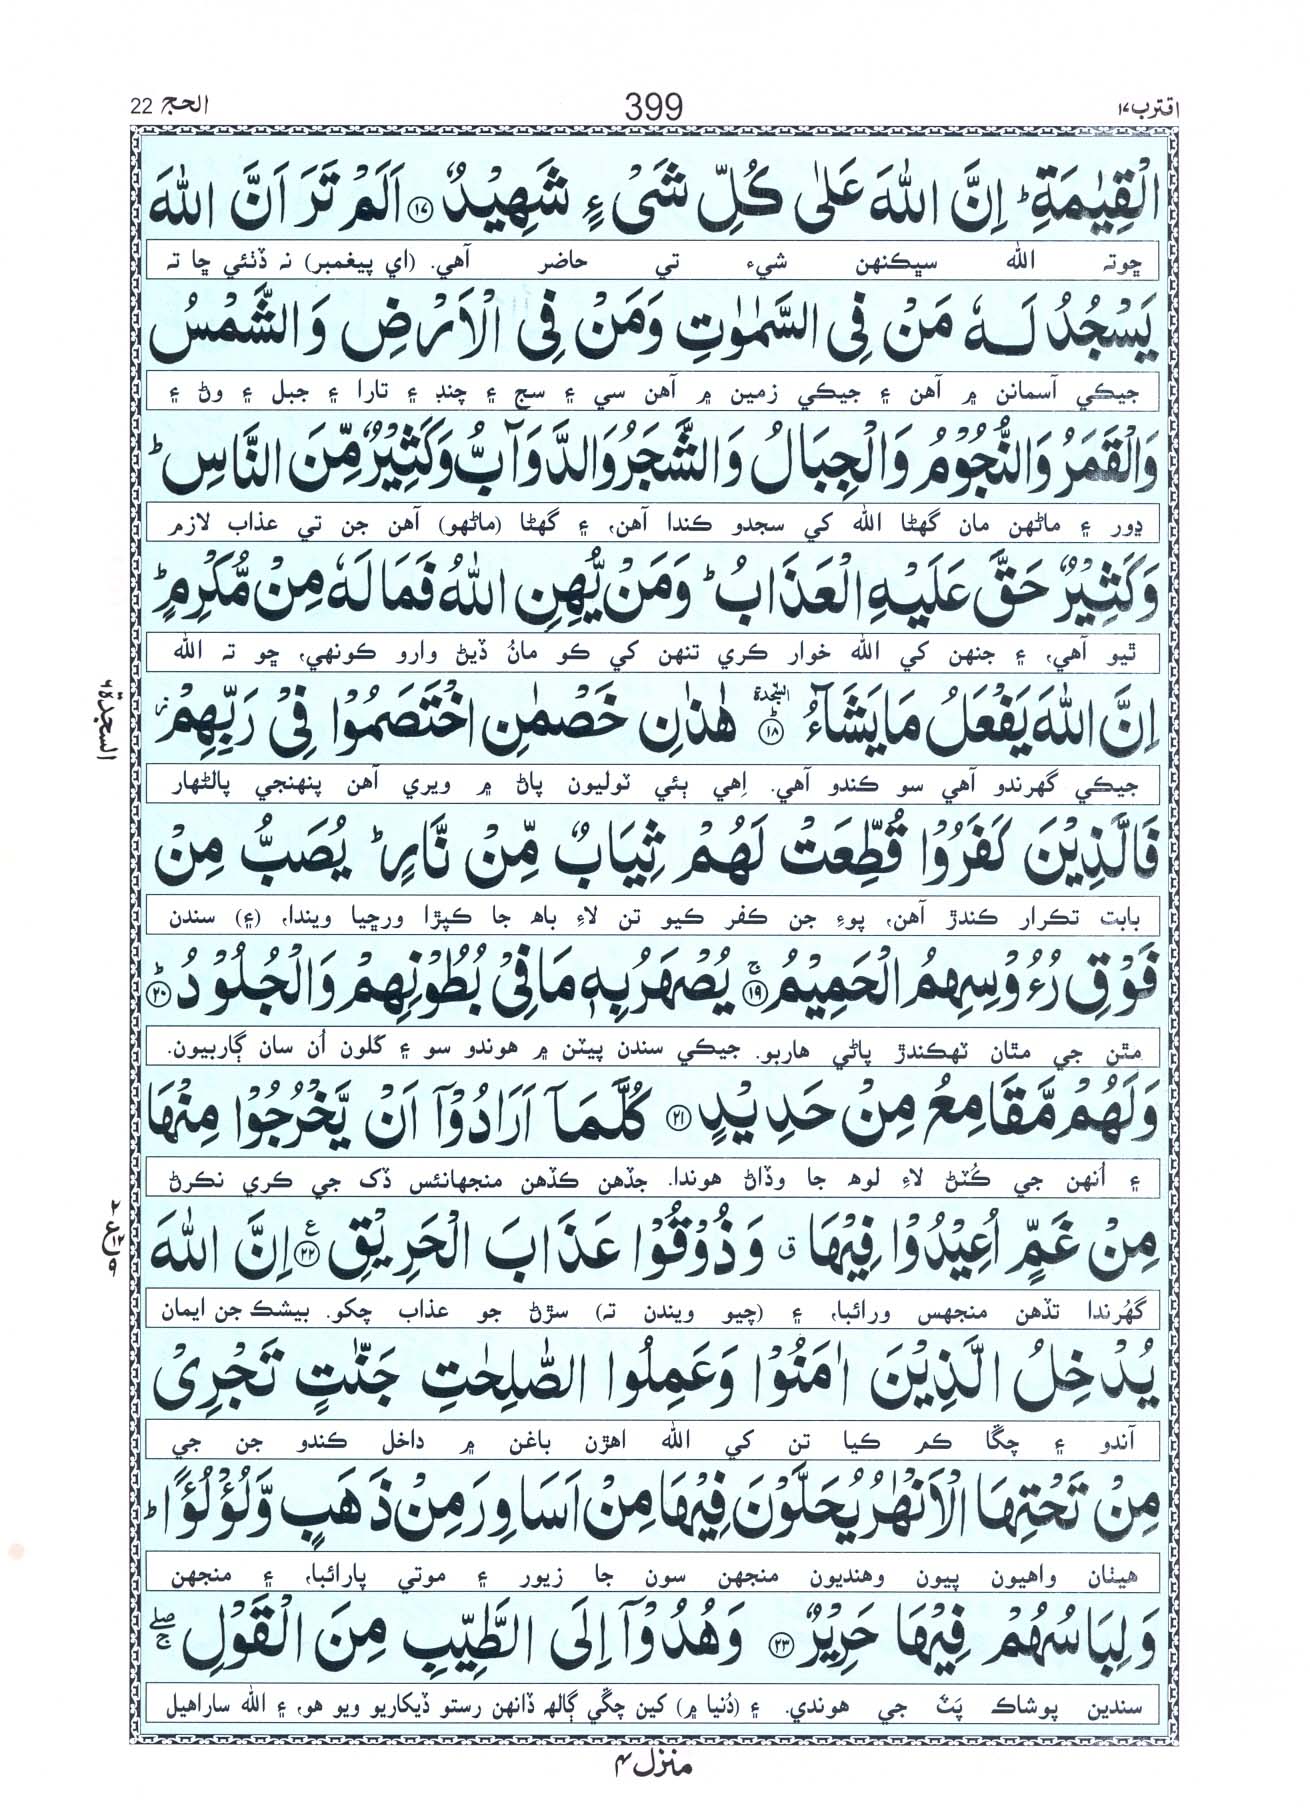 اقترب ١٧
399
الحج 22
الْقِيٰمَةِ ؕ اِنَّ اللّٰهَ عَلٰى كُلِّ شَىْءٍ شَهِيْدٌ ﴿١٧﴾ اَلَمْ تَرَ اَنَّ اللّٰهَ
ڇوته الله سڀڪنهن شيء تي حاضر آهي. (اي پيغمبر) نہ ڏٺئي ڇا تہ
يَسْجُدُ لَـهٗ مَنْ فِى السَّمٰوٰتِ وَمَنْ فِى الْاَرْضِ وَالشَّمْسُ
جيڪي آسمانن ۾ آهن ۽ جيڪي زمين ۾ آهن سي ۽ سج ۽ چنڊ ۽ تارا ۽ جبل ۽ وڻ ۽
وَالْقَمَرُ وَالنُّجُوْمُ وَالْجِبَالُ وَالشَّجَرُ وَالدَّوَآبُّ وَكَثِيْرٌ مِّنَ النَّاسِ ؕ
ڍور ۽ ماڻهن مان گهڻا الله کي سجدو ڪندا آهن، ۽ گهڻا (ماڻهو) آهن جن تي عذاب لازم
وَكَثِيْرٌ حَقَّ عَلَيْهِ الْعَذَابُ ؕ وَمَنْ يُّهِنِ اللّٰهُ فَمَا لَهٗ مِنْ مُّكْرِمٍ ؕ
ٿيو آهي، ۽ جنهن کي الله خوار ڪري تنهن کي ڪو مانُ ڏيڻ وارو ڪونهي، ڇو تہ الله
اِنَّ اللّٰهَ يَفْعَلُ مَا يَشَآءُ ﴿١٨﴾ السجدة هٰذٰنِ خَصْمٰنِ اخْتَصَمُوْا فِىْ رَبِّهِمْ ز
السجدة ٦
جيڪي گهرندو آهي سو ڪندو آهي. اِهي ٻئي ٽوليون پاڻ ۾ ويري آهن پنهنجي پالڻهار
فَالَّذِيْنَ كَفَرُوْا قُطِّعَتْ لَهُمْ ثِيَابٌ مِّنْ نَّارٍ ؕ يُصَبُّ مِنْ
بابت تڪرار ڪندڙ آهن، پوءِ جن ڪفر ڪيو تن لاءِ باهہ جا ڪپڙا ورڇيا ويندا، (۽) سندن
فَوْقِ رُءُوْسِهِمُ الْحَمِيْمُ ۚ ﴿١٩﴾ يُصْهَرُ بِهٖ مَا فِىْ بُطُوْنِهِمْ وَالْجُلُوْدُ ؕ ﴿٢٠﴾
مٿن جي مٿان ٽهڪندڙ پاڻي هاربو. جيڪي سندن پيٽن ۾ هوندو سو ۽ کَلون اُن سان ڳاربيون.
وَلَهُمْ مَّقَامِعُ مِنْ حَدِيْدٍ ﴿٢١﴾ كُلَّمَآ اَرَادُوْۤا اَنْ يَّخْرُجُوْا مِنْهَا
۽ اُنهن جي ڪُٽڻ لاءِ لوهہ جا وڏاڻ هوندا. جڏهن ڪڏهن منجهانئس ڏک جي ڪري نڪرڻ
مِنْ غَمٍّ اُعِيْدُوْا فِيْهَا ۗ وَذُوْقُوْا عَذَابَ الْحَرِيْقِ ﴿٢٢﴾ ع اِنَّ اللّٰهَ
گهُرندا تڏهن منجهس ورائبا، ۽ (چيو ويندن تہ) سڙڻ جو عذاب چکو. بيشڪ جن ايمان
يُدْخِلُ الَّذِيْنَ اٰمَنُوْا وَعَمِلُوا الصّٰلِحٰتِ جَنّٰتٍ تَجْرِىْ
آندو ۽ چڱا ڪم ڪيا تن کي الله اهڙن باغن ۾ داخل ڪندو جن جي
مِنْ تَحْتِهَا الْاَنْهٰرُ يُحَلَّوْنَ فِيْهَا مِنْ اَسَاوِرَ مِنْ ذَهَبٍ وَّلُؤْلُؤًا ؕ
هيٺان واهيون پيون وهنديون منجهن سون جا زيور ۽ موتي پارائبا، ۽ منجهن
وَلِبَاسُهُمْ فِيْهَا حَرِيْرٌ ﴿٢٣﴾ وَهُدُوْۤا اِلَى الطَّيِّبِ مِنَ الْقَوْلِ ۖۚ
سندين پوشاڪ پَٽ جي هوندي. ۽ (دُنيا ۾) کين چڱي ڳالهہ ڏانهن رستو ڏيکاريو ويو هو، ۽ الله ساراهيل
منزل ٤